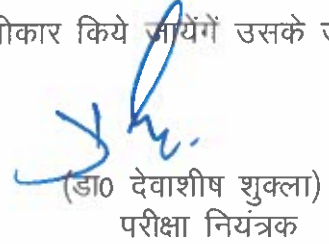 कार किये जायेंगें उसके
(डा0 देवाशीष शुक्ला)
परीक्षा नियंत्रक